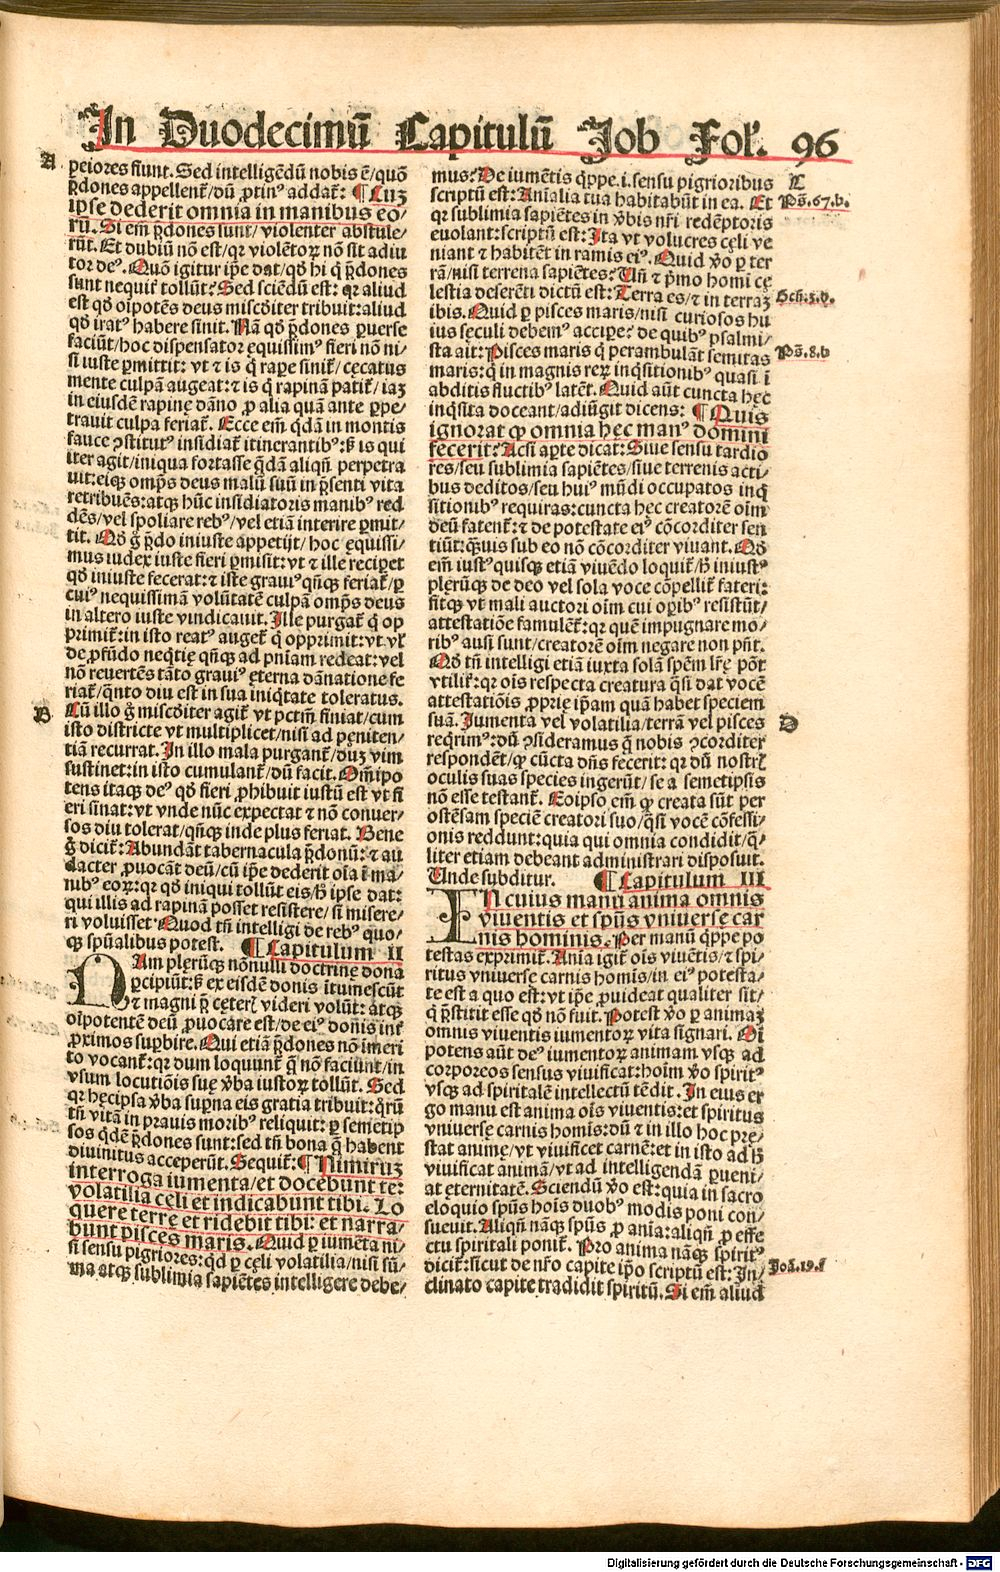 In Duodecimū Capitulū Job Fol. 96
A
peiores fiunt. Sed intelligēdū nobis ē/quō
p̄dones appellent᷑/dū ꝓtin⁹ addat᷑: ¶ Cuʒ
ipse dederit omnia in manibus eo/
rū. Si em̄ p̄dones sunt/violenter abstule/
rūt. Et dubiū nō est/qꝛ violētoꝝ nō sit adiu
tor de⁹. Quō igitur ip̄e dat/qḋ hi q̇ p̄dones
sunt nequit᷑ tollūt? Sed sciēdū est: qꝛ aliud
est qḋ oīpotēs deus miscḋiter tribuit: aliud
qḋ irat⁹ habere sinit. Nā qḋ p̄dones ꝑuerse
faciūt/hoc dispensator ęquissim⁹ fieri nō ni/
si iuste ꝑmittit: vt ⁊ is q̇ raꝑe sinit᷑/cęcatus
mente culpā augeat: ⁊ is q̇ rapinā patit᷑/iaʒ
in eiusdē rapinę dāno ꝓ alia quā ante ꝑpe/
trauit culpa feriat᷑. Ecce em̄ q̇dā in montis
fauce ꝯstitut⁹ insidiat᷑ itinerantib⁹: ß is qui
iter agit/iniqua fortasse q̄dā aliqn̄ perpetra
uit: eiqꝫ omp̄s deus malū suū in p̄senti vita
retribuēs: atqꝫ hūc insidiatoris manib⁹ red
dēs/vel spoliare reb⁹/vel etiā interire ꝑmit/
tit. Qḋ g̊ p̄do iniuste appetijt/hoc ęquissi/
mus iudex iuste fieri ꝑmisit: vt ⁊ ille reciꝑet
qḋ iniuste fecerat: ⁊ iste graui⁹ qn̄qꝫ feriat᷑/ꝑ
cui⁹ nequissimā volūtatē culpā omp̄s deus
in altero iuste vindicauit. Ille purgat᷑ q̇ op
primit᷑: in isto reat⁹ auget᷑ q̇ opprimit: vt vl᷑
de ꝓfūdo neq̇tię qn̄qꝫ ad pn̄iam redeat: vel
nō reuertēs tāto graui⁹ ęterna dānatione fe
riat᷑/q̄nto diu est in sua iniq̇tate toleratus.
B
Cū illo g̊ miscḋiter agit᷑ vt pctm̄ finiat/cum
isto districte vt multiplicet/nisi ad pęniten/
tiā recurrat. In illo mala purgant᷑/duʒ vim
sustinet: in isto cumulant᷑/dū facit. Om̄ipo
tens itaqꝫ de⁹ qḋ fieri ꝓhibuit iustū est vt fi
eri sinat: vt vnde nūc expectat ⁊ nō conuer/
sos diu tolerat/qn̄qꝫ inde plus feriat. Bene
g̊ dicit᷑: Abundāt tabernacula p̄donū: ⁊ au
dacter ꝓuocāt deū/cū ip̄e dederit oīa ī ma/
nib⁹ eoꝝ: qꝛ qḋ iniqui tollūt eis/ḣ ipse dat:
qui illis ad rapinā posset resistere/si misere/
ri voluisset Quod tn̄ intelligi de reb⁹ quo/
qꝫ spūalibus potest. ¶ Capitulum II
NAm plęrūqꝫ nōnulli doctrinę dona
ꝑcipiūt: ß ex eisdē donis ītumescūt
⁊ magni p̄ cęteri᷑ videri volūt: atqꝫ
oīpotentē deū ꝓuocare est/de ei⁹ donis int᷑
ꝓximos suꝑbire. Qui etiā p̄dones nō īmeri
to vocant᷑: qꝛ dum loquunt᷑ q̄ nō faciunt/in
vsum locutiōis suę v̇ba iustoꝝ tollūt. Sed
qꝛ hęcipsa v̇ba suꝑna eis gratia tribuit: q̄rū
tn̄ vitā in prauis morib⁹ reliquit: ꝑ semetip
sos q̇dē p̄dones sunt: sed tn̄ bona q̄ habent
diuinitus acceperūt. Sequit᷑: ¶ Nimiruʒ
interroga iumenta/et docebunt te:
volatilia cęli et indicabunt tibi. Lo
quere terrę et rn̄debit tibi: et narra/
bunt pisces maris. Quid ꝑ iumēta ni/
si sensu pigriores: qḋ ꝑ cęli volatilia/nisi sū/
ma atqꝫ sublimia sapiētes intelligere debe/
mus? De iumētis q̇ppe .i. sensu pigrioribus
scriptū est: Anīalia tua habitabūt in ea. Et
C
Ps̄.67.b.
qꝛ sublimia sapiētes in v̇bis nr̄i redēptoris
euolant: scriptū est: Ita vt volucres cęli ve
niant ⁊ habitēt in ramis ei⁹. Quid v̊o ꝑ ter
rā/nisi terrena sapiētes? Vn̄ ⁊ ṗmo homī cę
lestia deserēti dictū est: Terra es/⁊ in terraʒ
Gen̄.3.d.
ibis. Quid ꝑ pisces maris/nisi curiosos hu
ius sęculi debem⁹ acciꝑe? de quib⁹ psalmi/
sta ait: Pisces maris q̇ perambulāt semitas
Ps̄.8.b
maris: q̇ in magnis reꝝ inq̇sitionib⁹ quasi ī
abditis fluctib⁹ latēt. Quid aūt cuncta hęc
inq̇sita doceant/adiūgit dicens: ¶ Quis
ignorat ꝙ omnia hęc man⁹ domini
fecerit? Acsi aꝑte dicat: Siue sensu tardio
res/seu sublimia sapiētes/siue terrenis acti/
bus deditos/seu hui⁹ mūdi occupatos inq̇
sitionib⁹ requiras: cuncta hęc creatorē oīm
deū fatent᷑: ⁊ de potestate ei⁹ cōcorditer sen
tiūt: q̄uis sub eo nō cōcorditer viuant. Qḋ
em̄ iust⁹ quisqꝫ etiā viuēdo loquit᷑/ḣ iniust⁹
plęrūqꝫ de deo vel sola voce cōpellit᷑ fateri:
fitqꝫ vt mali auctori oīm cui oꝑib⁹ resistūt/
attestatiōe famulent᷑: qꝛ quē impugnare mo/
rib⁹ ausi sunt/creatorē oīm negare non pn̄t.
Qḋ tn̄ intelligi etiā iuxta solā spēm lr̄ę pōt
vtilit᷑: qꝛ oīs respecta creatura q̄si dat vocē
attestatiōis ꝓprię ip̄am quā habet speciem
D
suā. Iumenta vel volatilia/terrā vel pisces
req̇rim⁹: dū ꝯsideramus q̄ nobis ꝯcorditer
respondēt/ꝙ cūcta dn̄s fecerit: qꝛ dū nostri᷑
oculis suas species ingerūt/se a semetipsis
nō esse testant᷑. Eoipso em̄ ꝙ creata sūt per
ostēsam speciē creatori suo/q̄si vocē cōfessi/
onis reddunt: quia qui omnia condidit/q̄/
liter etiam debeant administrari disposuit.
Unde subditur. ¶ Capitulum III
IN cuius manu anima omnis
viuentis et spūs vniuerse car
nis hominis. Per manū q̇ppe po
testas exprimit᷑. Anīa igit᷑ oīs viuētis/⁊ spi/
ritus vniuerse carnis homīs/in ei⁹ potesta/
te est a quo est: vt ip̄e ꝓuideat qualiter sit/
q̇ p̄stitit esse qḋ nō fuit. Potest v̊o ꝑ animaʒ
omnis viuentis iumentoꝝ vita signari. Oī
potens aūt de⁹ iumentoꝝ animam vsqꝫ ad
corporeos sensus viuificat: hoīm v̊o spirit⁹
vsqꝫ ad spiritalē intellectū tēdit. In eius er
go manu est anima oīs viuentis: et spiritus
vniuerse carnis homīs: dū ⁊ in illo hoc pre/
stat animę/vt viuificet carnē: et in isto ad ḣ
viuificat animā/vt ad intelligendā ꝑueni/
at ęternitatē. Sciendū v̊o est: quia in sacro
eloquio spūs hoīs duob⁹ modis poni con/
sueuit. Aliqn̄ nāqꝫ spūs ꝓ anīa: aliqn̄ ꝓ effe
ctu spiritali ponit᷑. Pro anima nāqꝫ spirit⁹
dicit᷑: sicut de nr̄o capite ip̄o scriptū est: In/
Joā.19.f
clinato capite tradidit spiritū. Si em̄ aliud
Digitalisierung gefördert durch die Deutsche Forschungsgemeinschaft - DFG